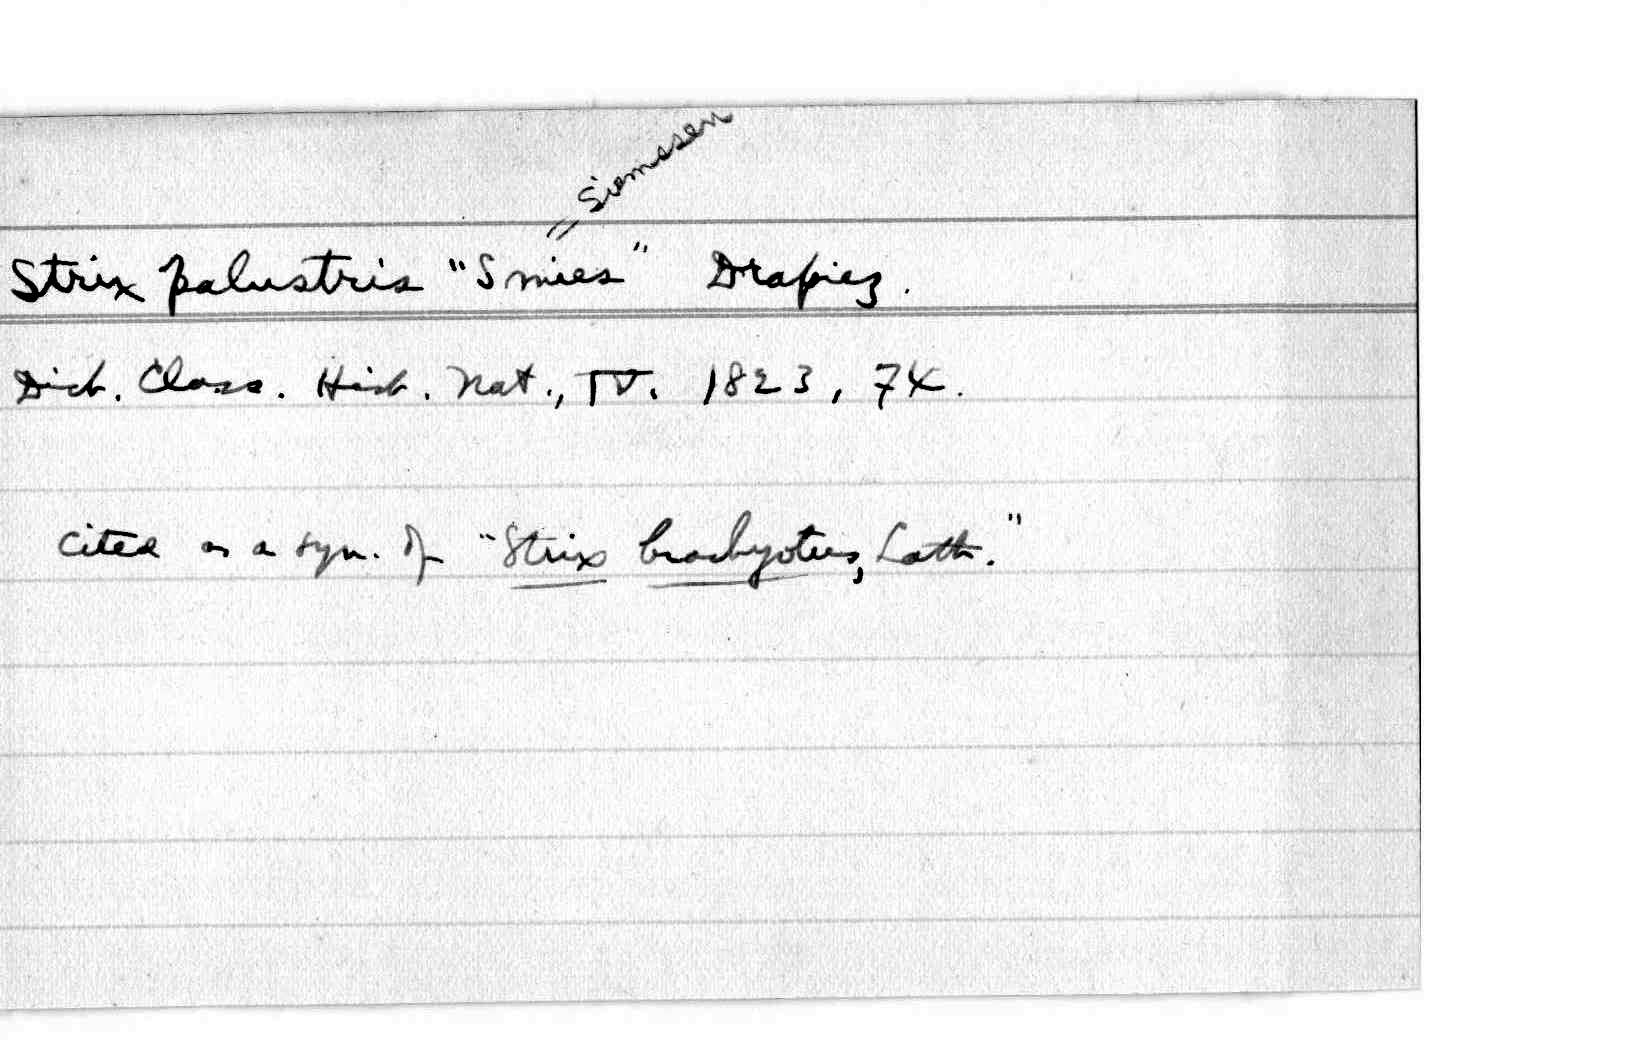 = Siemssen
Strix palustris "Smies" Drapiez.
Dict. Class. Hist. Nat., IV. 1823, 74.
Cited as a syn. of "Strix brachyotus, Lath."